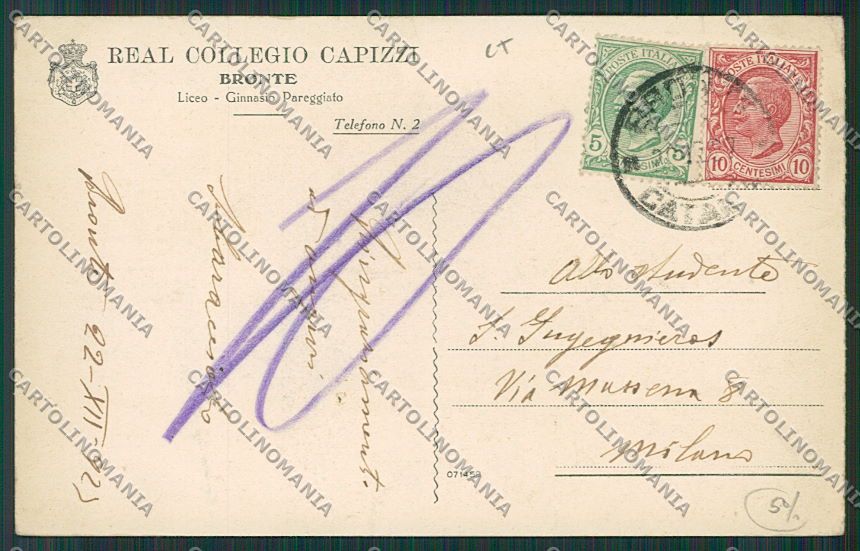 REAL COLLEGIO CAPIZZI
BRONTE
Liceo - Ginnasio Pareggiato
Telefono N. 2
CT
POSTE ITALIANE
5 5
POSTE ITALIANE
10 10
CENTESIMI
BRONTE
CATANIA
Allo studente
S. Ingegnieros
Via Massena 8
Milano
Bronte 22-XII-925
07145
5/-
CARTOLINOMANIA